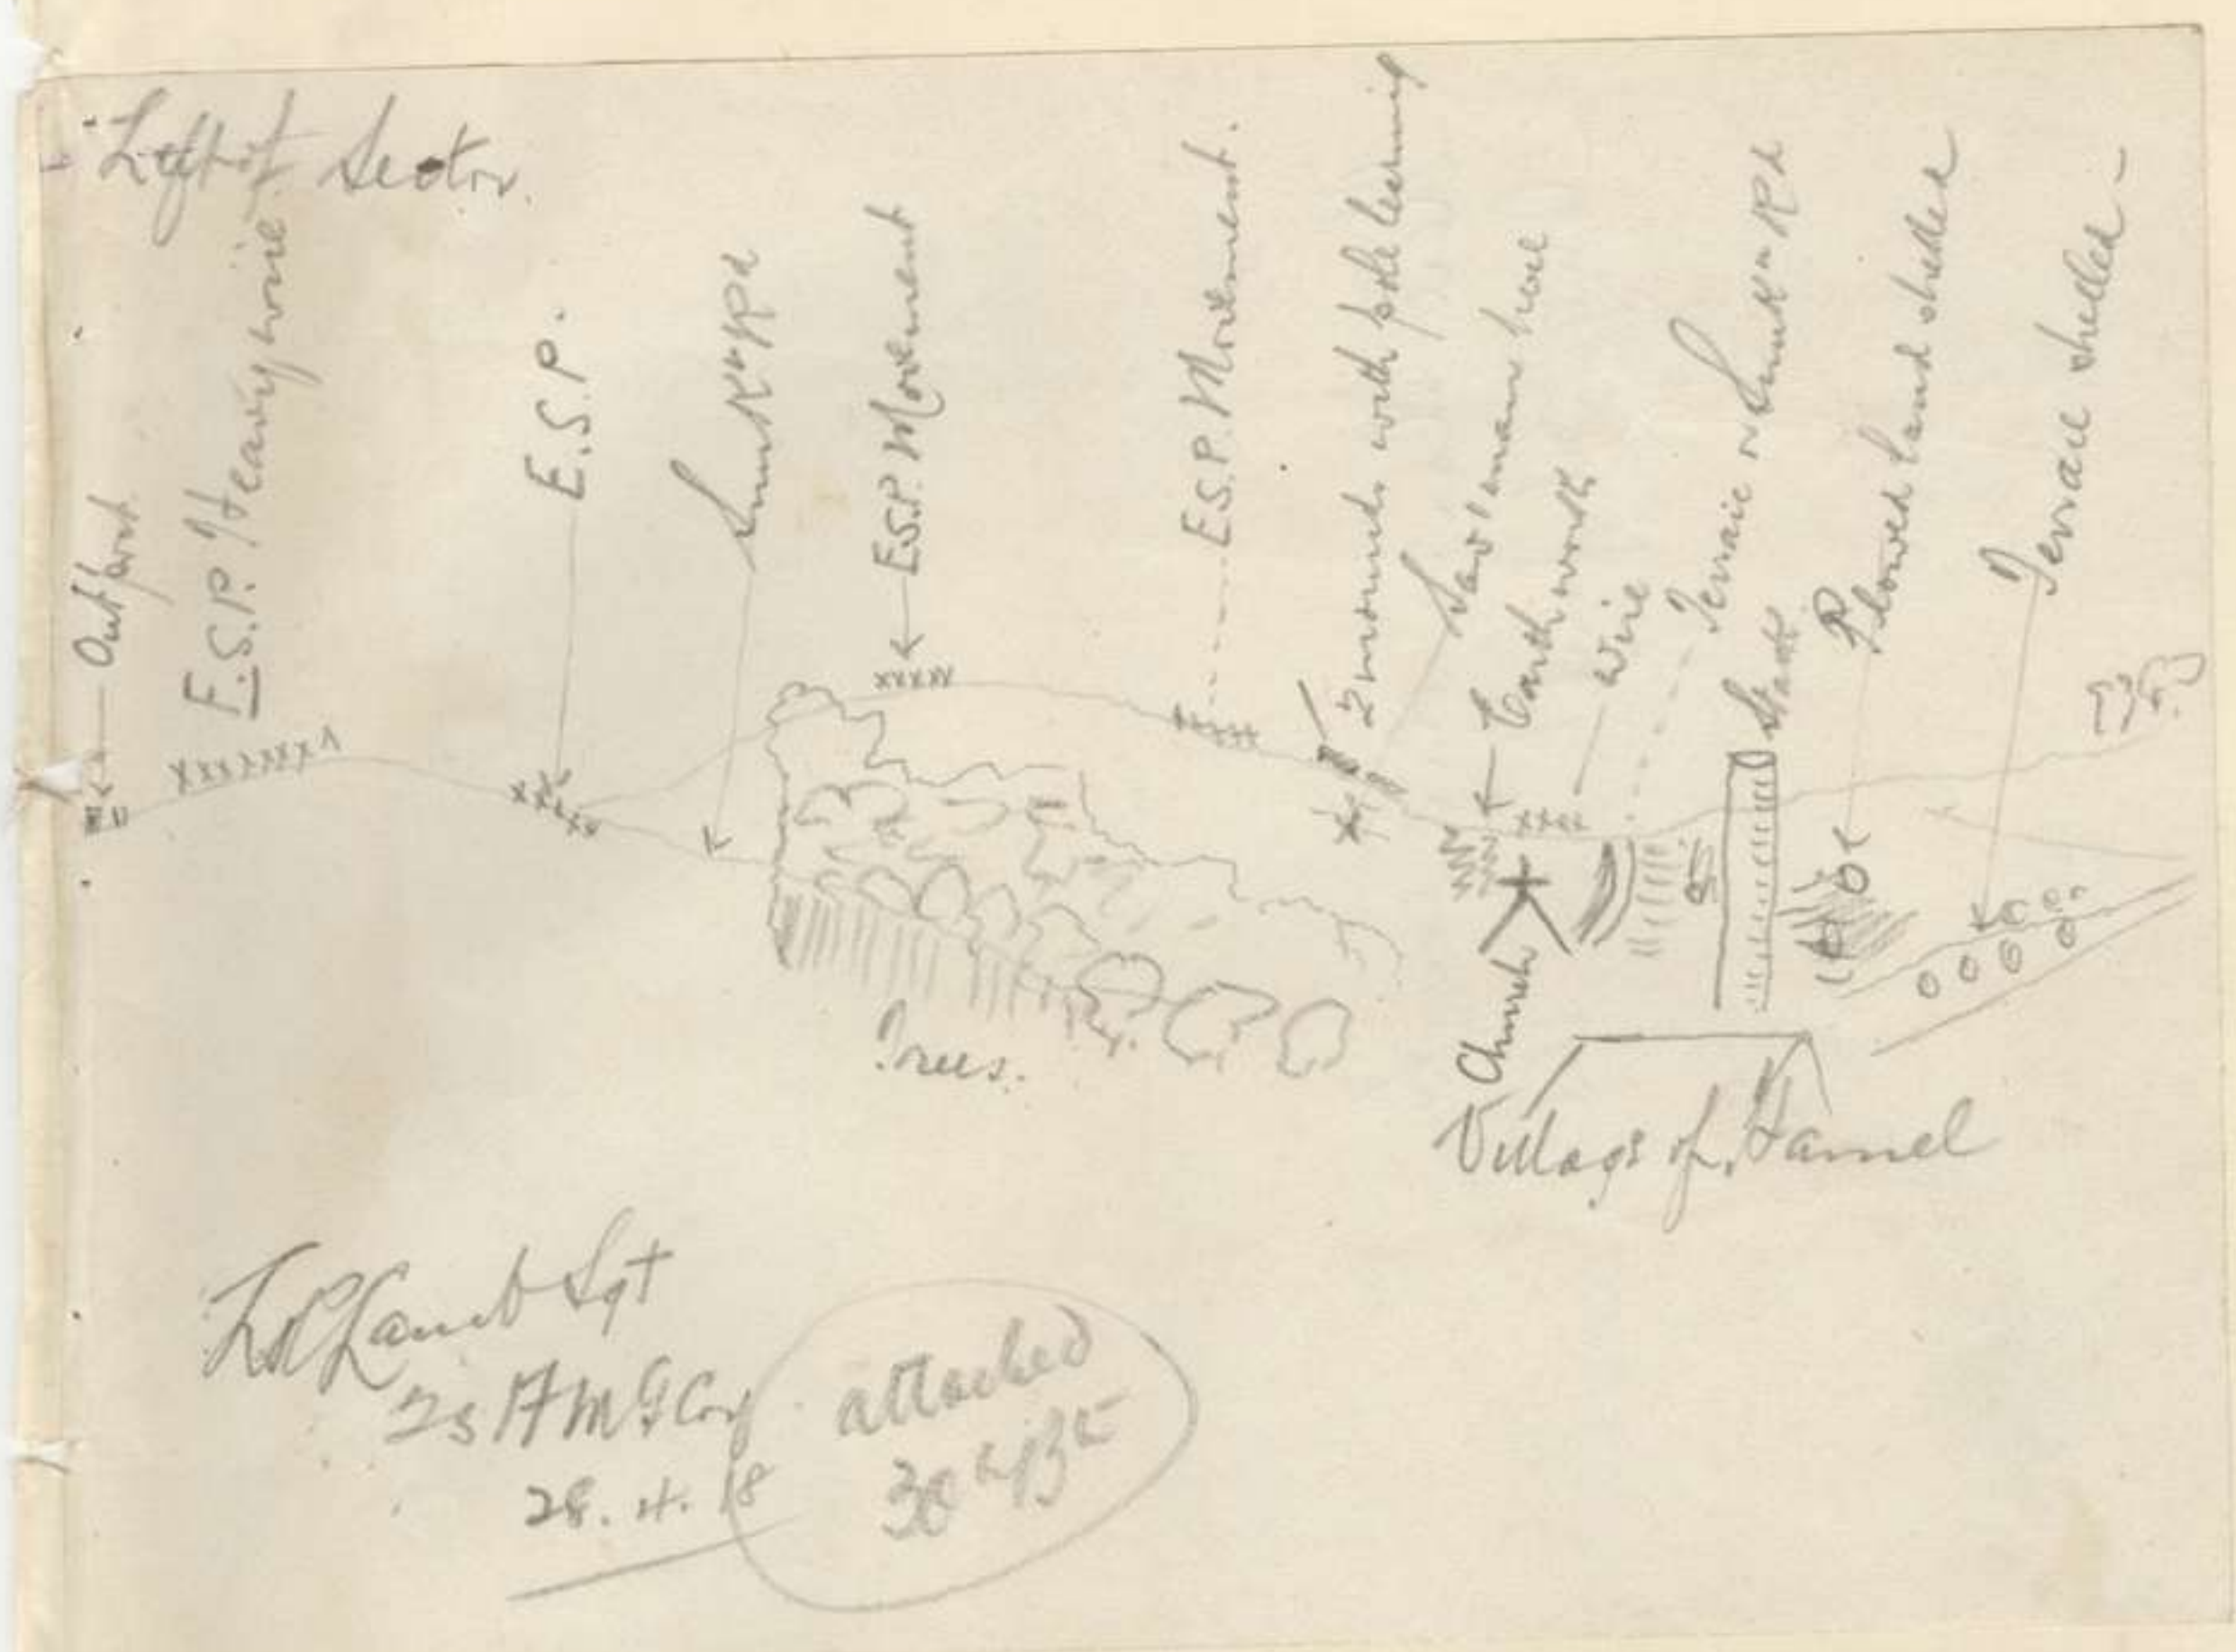 Left of Sector.
Outpost
E.S.P. Heavy wire
E.S.P.
Sunkn Rd
E.S.P. Movement
E.S.P. Movement.
2 mounds with pole leaning
Saw 1 man here
Earthworks
wire
Terrace or Sunkn Rd
Stack
Plowed land shelled
Terrace shelled
Trees.
Church
Village of Hamel
Lamb Sgt
M G Coy
28.4.18
attached
30th Bn